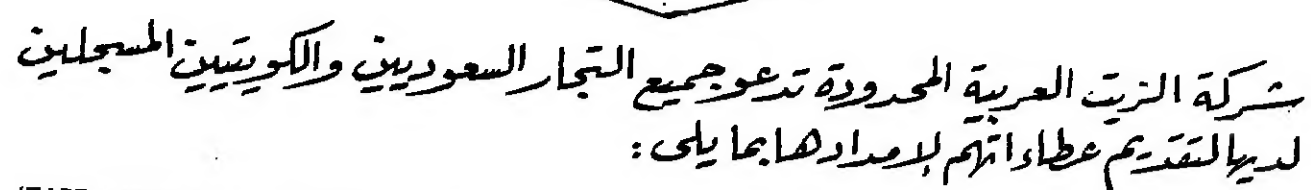 شركة الزيت العربية المحدودة تدعو جميع التجار السعوديين والكويتيين المسجلين
لديها لتقديم عطاءاتهم لامدادها بما يلي :